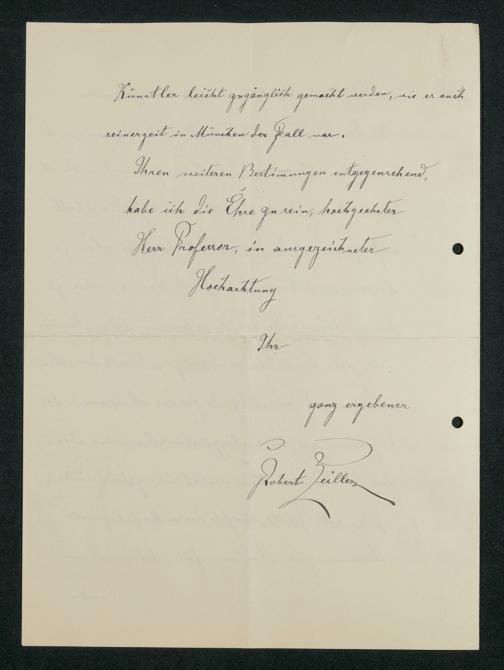 Künstler leicht zugänglich gemacht werden, wie er auch
seinerzeit in München der Fall war.
Ihren weiteren Bestimmungen entgegensehend,
habe ich die Ehre zu sein, hochgeehrter
Herr Professor, in ausgezeichneter
Hochachtung
Ihr
ganz ergebener
Robert Zeiller